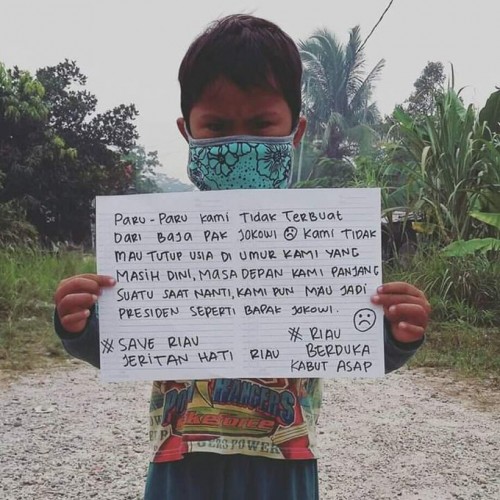 PARU-PARU KAMI TIDAK TERBUAT
DARI BAJA PAK JOKOWI ☹ KAMI TIDAK
MAU TUTUP USIA DI UMUR KAMI YANG
MASIH DINI, MASA DEPAN KAMI PANJANG
SUATU SAAT NANTI, KAMI PUN MAU JADI
PRESIDEN SEPERTI BAPAK JOKOWI. ☹
# SAVE RIAU
JERITAN HATI RIAU
# RIAU
BERDUKA
KABUT ASAP
RANGERS